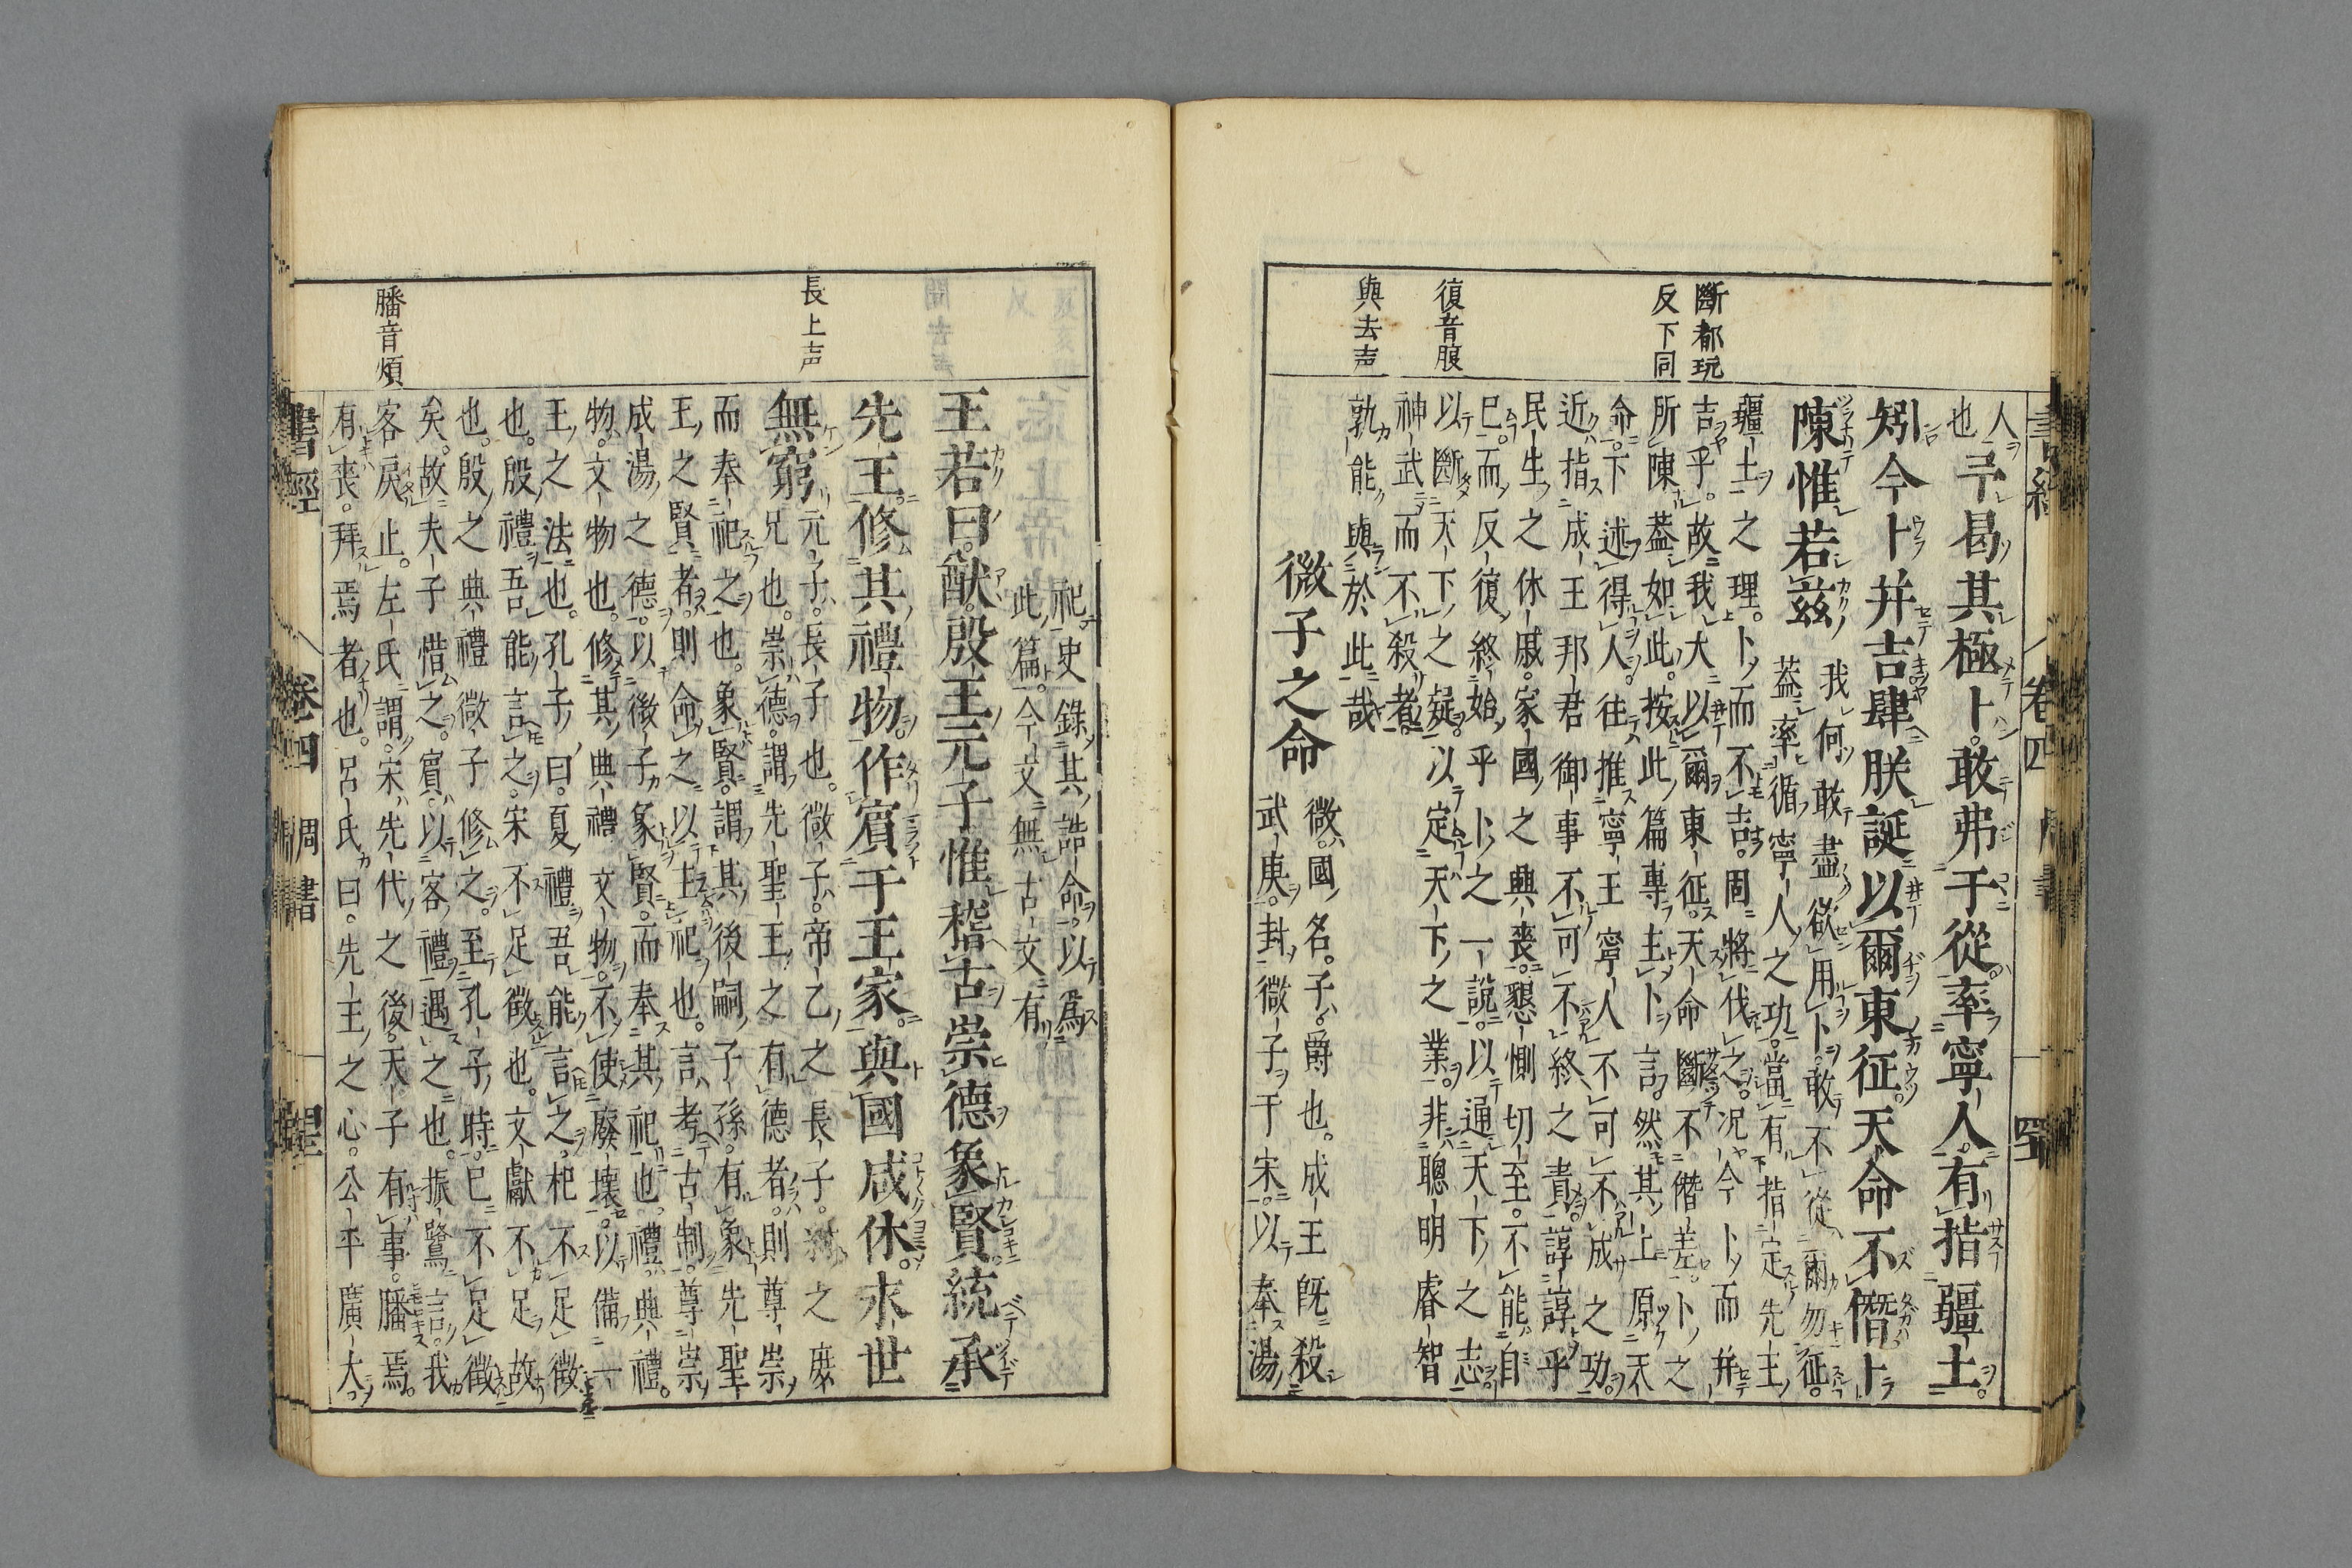 斷都玩
反下同
復音腹
與去声
人
也
予曷其極卜。敢弗于從。率寧人。有指疆土。
矧今卜并吉。肆朕誕以爾東征。天命不僭。卜
陳惟若茲
我何敢盡欲用卜。敢不從爾勿征。
蓋率循寧人之功。當有指定先王
疆土之理。卜而不吉。固將伐之。況今卜而并
吉乎。故我大以爾東征。天命斷不僭差。卜之
所陳蓋如此。按此篇專主卜言。然其上原天
命。下述得人。往推寧王寧人不可不成之功。
近指成王邦君御事不可不終之責。諄諄乎
民生之休戚。家國之興喪。懇惻切至。不能自
已。而反復終始乎卜之一說。以通天下之志
以斷天下之疑。以定天下之業。非聰明睿智
神武而不殺者。
孰能與於此哉
微子之命
微。國名。子。爵也。成王既殺
武庚。封微子于宋。以奉湯
書經
卷四
周書
長上声
膰音煩
祀。史錄其誥命。以爲
此篇。今文無。古文有
王若曰。猷。殷王元子。惟稽古崇德象賢。統承
先王。修其禮物。作賓于王家。與國咸休。永世
無窮
元子。長子也。微子。帝乙之長子。紂之庶
兄也。崇德。謂先聖王之有德者。則尊崇
而奉祀之也。象賢。謂其後嗣子孫。有象先聖
王之賢者。則命之以主祀也。言考古制。尊崇
成湯之德。以微子象賢。而奉其祀也。禮。典禮。
物。文物也。修其典禮文物。不使廢壞。以備一
王之法也。孔子曰。夏禮吾能言之。杞不足徵
也。殷禮吾能言之。宋不足徵也。文獻不足故
也。殷之典禮微子修之。至孔子時。已不足徵
矣。故夫子惜之。賓。以客禮遇之也。振鷺言。我
客戾止。左氏謂。宋先代之後。天子有事。膰焉。
有喪。拜焉者也。呂氏曰。先王之心。公平廣大。
書經
卷四
周書